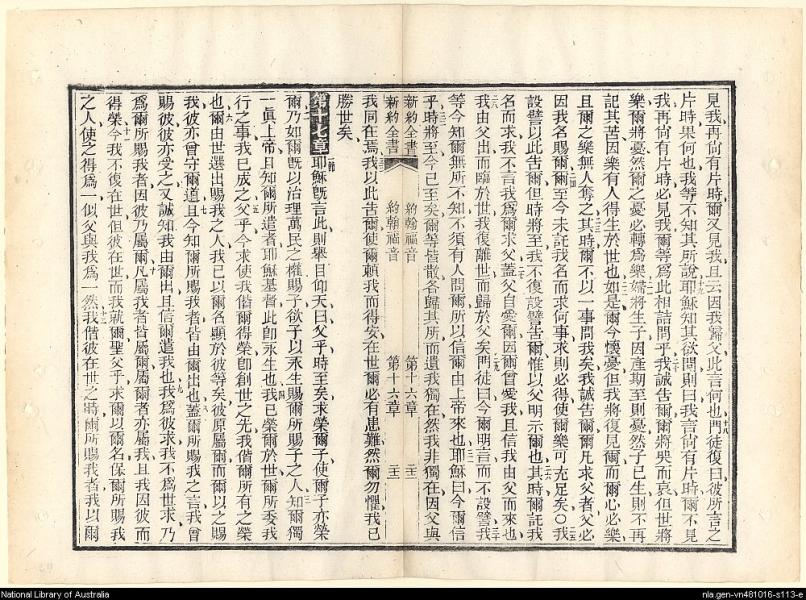 見我再尙有片時爾又見我且云因我歸父此言何也門徒復曰彼所言之
片時果何也我等不知其所說耶穌知其欲問則曰我言尙有片時爾不見
我再尙有片時必見我爾等爲此相詰問乎我誠告爾爾將哭而哀但世將
樂爾將憂然爾之憂必轉爲樂婦將生子因產期至則憂然子已生則不再
記其苦因樂有人得生於世也如是爾今懷憂但我將復見爾而爾心必樂
且爾之樂無人奪之其時爾不以一事問我矣我誠告爾爾凡求父者父必
因我名賜爾爾至今未託我名而求何事求則必得使爾樂可充足矣○我
設譬以此告爾但時將至我不復設譬告爾惟以父明示爾也其時爾託我
名而求我不言我爲爾求父蓋父自愛爾因爾曾愛我且信我由父而來也
我由父出而臨於世我復離世而歸於父矣門徒曰今爾明言而不設譬我
等今知爾無所不知不須有人問爾所以信爾由上帝來也耶穌曰今爾信
乎時將至今已至矣爾等皆散各歸其所而遺我獨在然我非獨在因父與
新約全書 約翰福音 第十六章
新約全書 約翰福音 第十六章
我同在焉我以此告爾使爾賴我而得安在世爾必有患難然爾勿懼我已
勝世矣
第十七章耶穌旣言此則舉目仰天曰父乎時至矣求榮爾子使爾子亦榮
爾乃如爾旣以治理萬民之權賜子欲子以永生賜爾所賜子之人知爾獨
一眞上帝且知爾所遣者耶穌基督此卽永生也我已榮爾於世爾所委我
行之事我已成之父乎今求使我偕爾得榮卽創世之先我偕爾所有之榮
也爾由世選出賜我之人我已以爾名顯於彼等矣彼原屬爾而爾以之賜
我彼亦曾守爾道且今知爾所賜我者皆由爾出也蓋爾所賜我之言我曾
賜彼彼亦受之又誠知我由爾出且信爾遣我也我爲彼求我不爲世求乃
爲爾所賜我者因彼乃屬爾凡屬我者皆屬爾屬爾者亦屬我且我因彼而
得榮今我不復在世但彼在世而我就爾聖父乎求爾以爾名保爾所賜我
之人使之得爲一似父與我爲一然我偕彼在世之時爾所賜我者我以爾
National Library of Australia
nla.gen-vn481016-s113-e